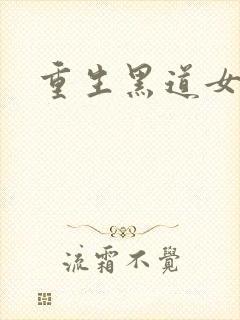 重生黑道女
流霜不覺